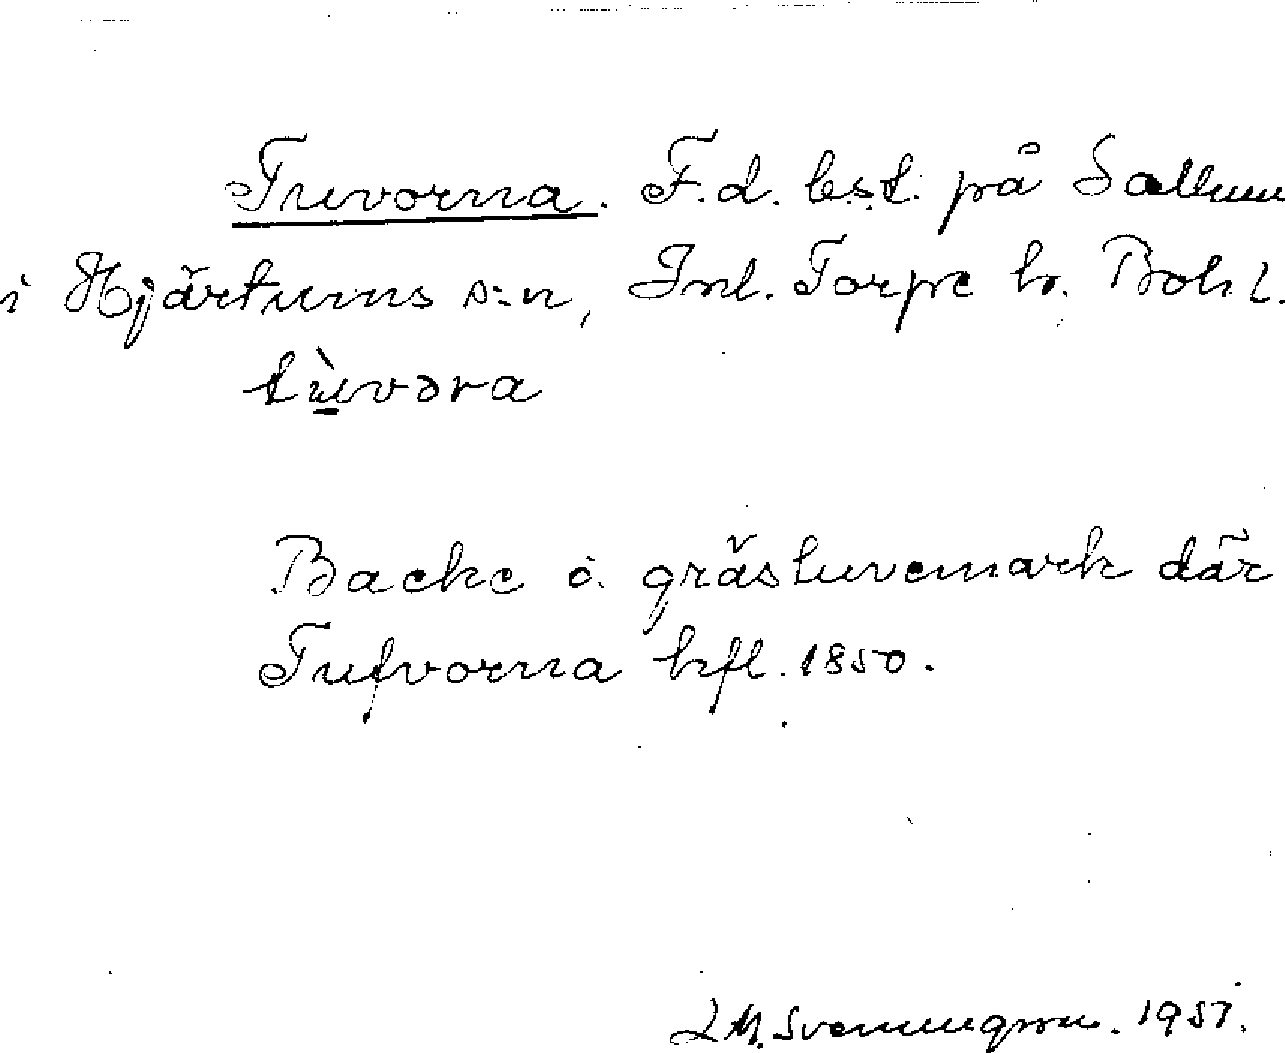 Tuvorna. F.d. bst. på Sallum
i Hjärtums s:n, Inl. Torpe hr. Boh l.
tùvəra
Backe o. grästuvemark där
Tufvorna hfl. 1850.
L M. Svenungsson. 1957.